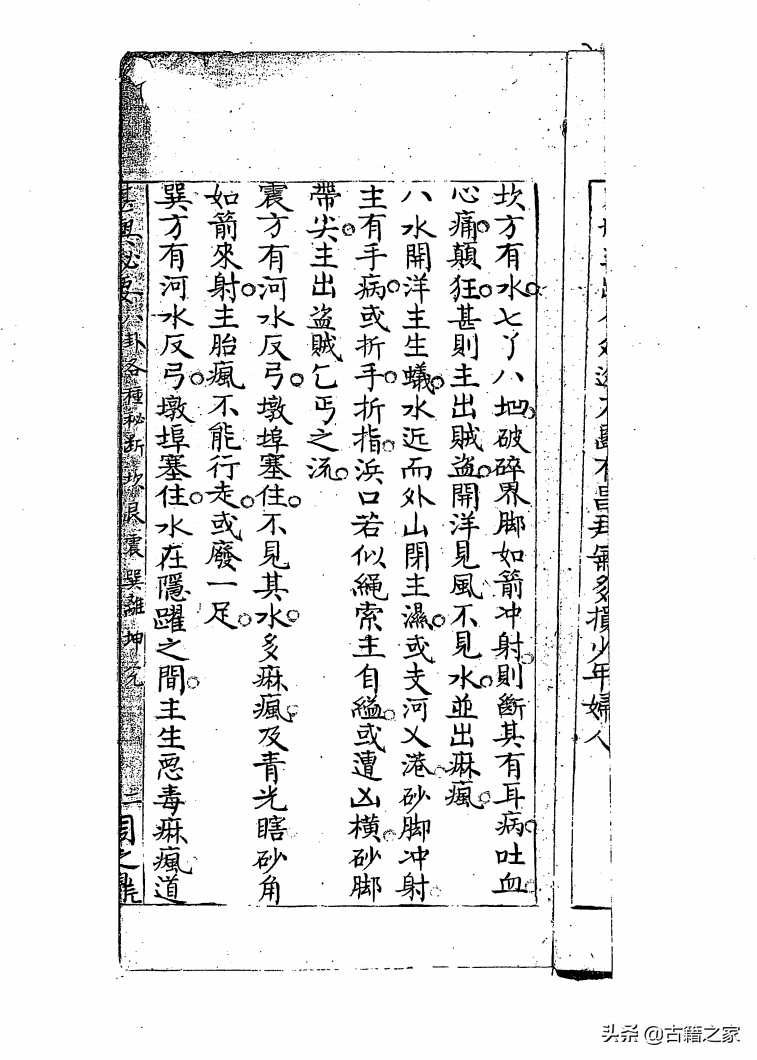 氣多損少年婦人
坎方有水七丫八破碎界脚如箭冲射則斷其有耳病吐血
心痛顛狂甚則主出賊盗開洋見風不見水並出麻瘋
八水開洋主生蟻水近而外山閉主濕或支河乂港砂脚冲射
主有手病或折手折指浜口若似繩索主自縊或遭凶橫砂脚
帶尖主出盗賊乞丐之流
震方有河水反弓墩埠塞住不見其水多麻瘋及青光瞎砂角
如箭來射主胎瘋不能行走或廢一足
巽方有河水反弓墩埠塞住水在隱躍之間主生恶毒麻瘋道
堪輿秘要 八卦各種秘断 坎艮震巽離坤兌 二
头条 @古籍之家